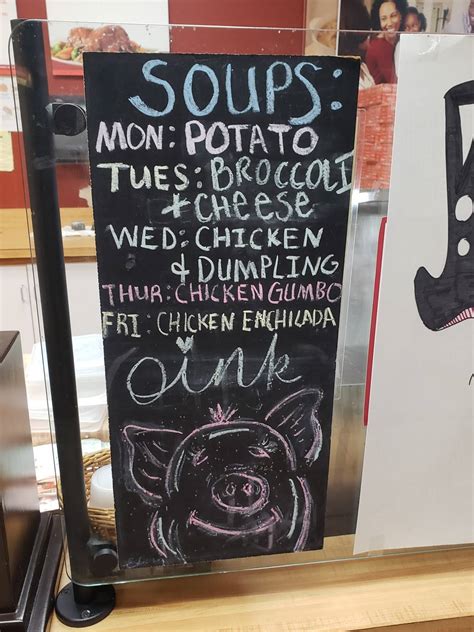 SOUPS:
MON: POTATO
TUES: BROCCOLI
& CHEESE
WED: CHICKEN
& DUMPLING
THUR: CHICKEN GUMBO
FRI: CHICKEN ENCHILADA
oink